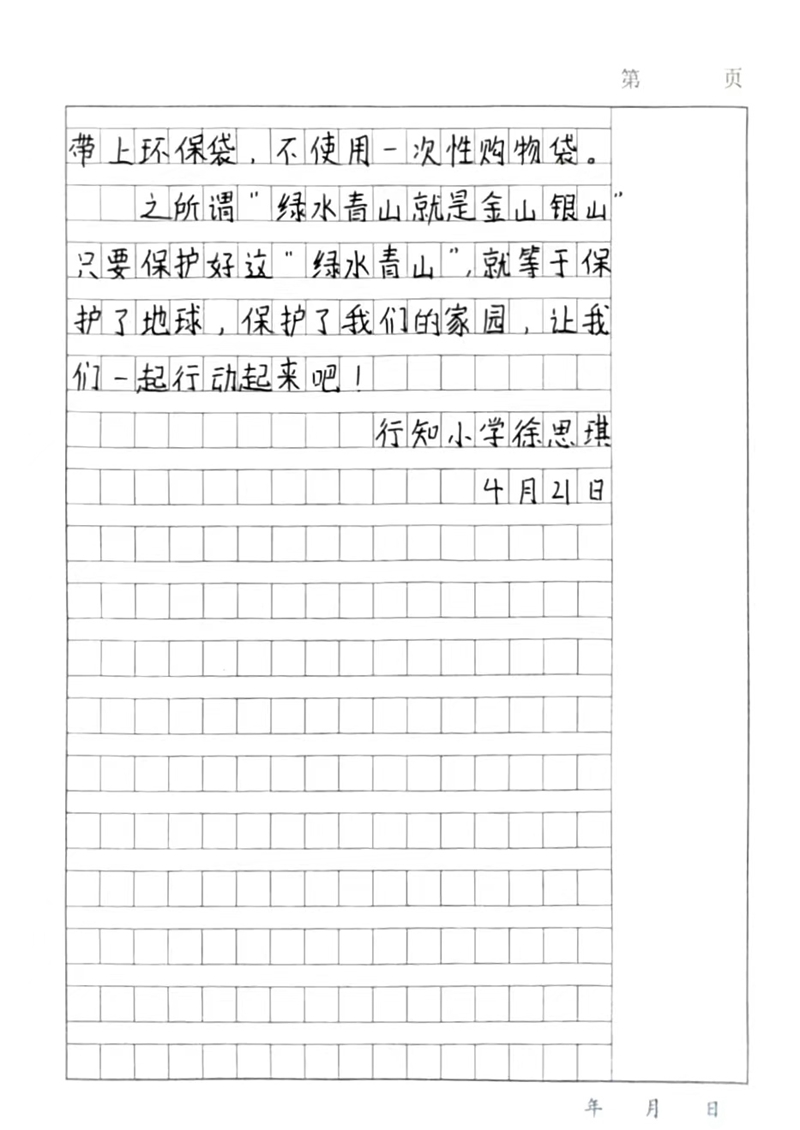 第 页
带上环保袋，不使用一次性购物袋。
之所谓“绿水青山就是金山银山”
只要保护好这“绿水青山”，就等于保
护了地球，保护了我们的家园，让我
们一起行动起来吧！
行知小学徐思琪
4月21日
年 月 日